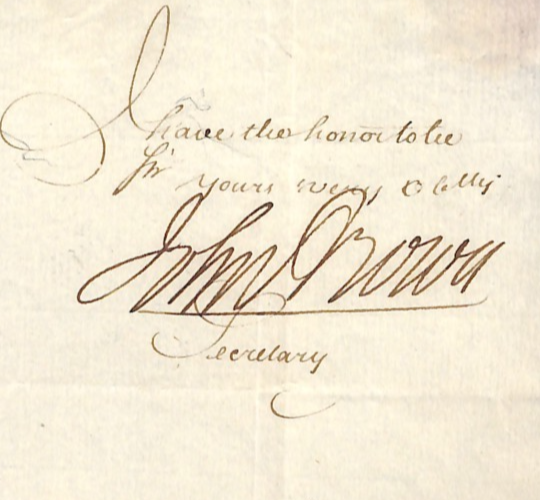 I have the honor to be
Sir
yours very
John Brown
Secretary